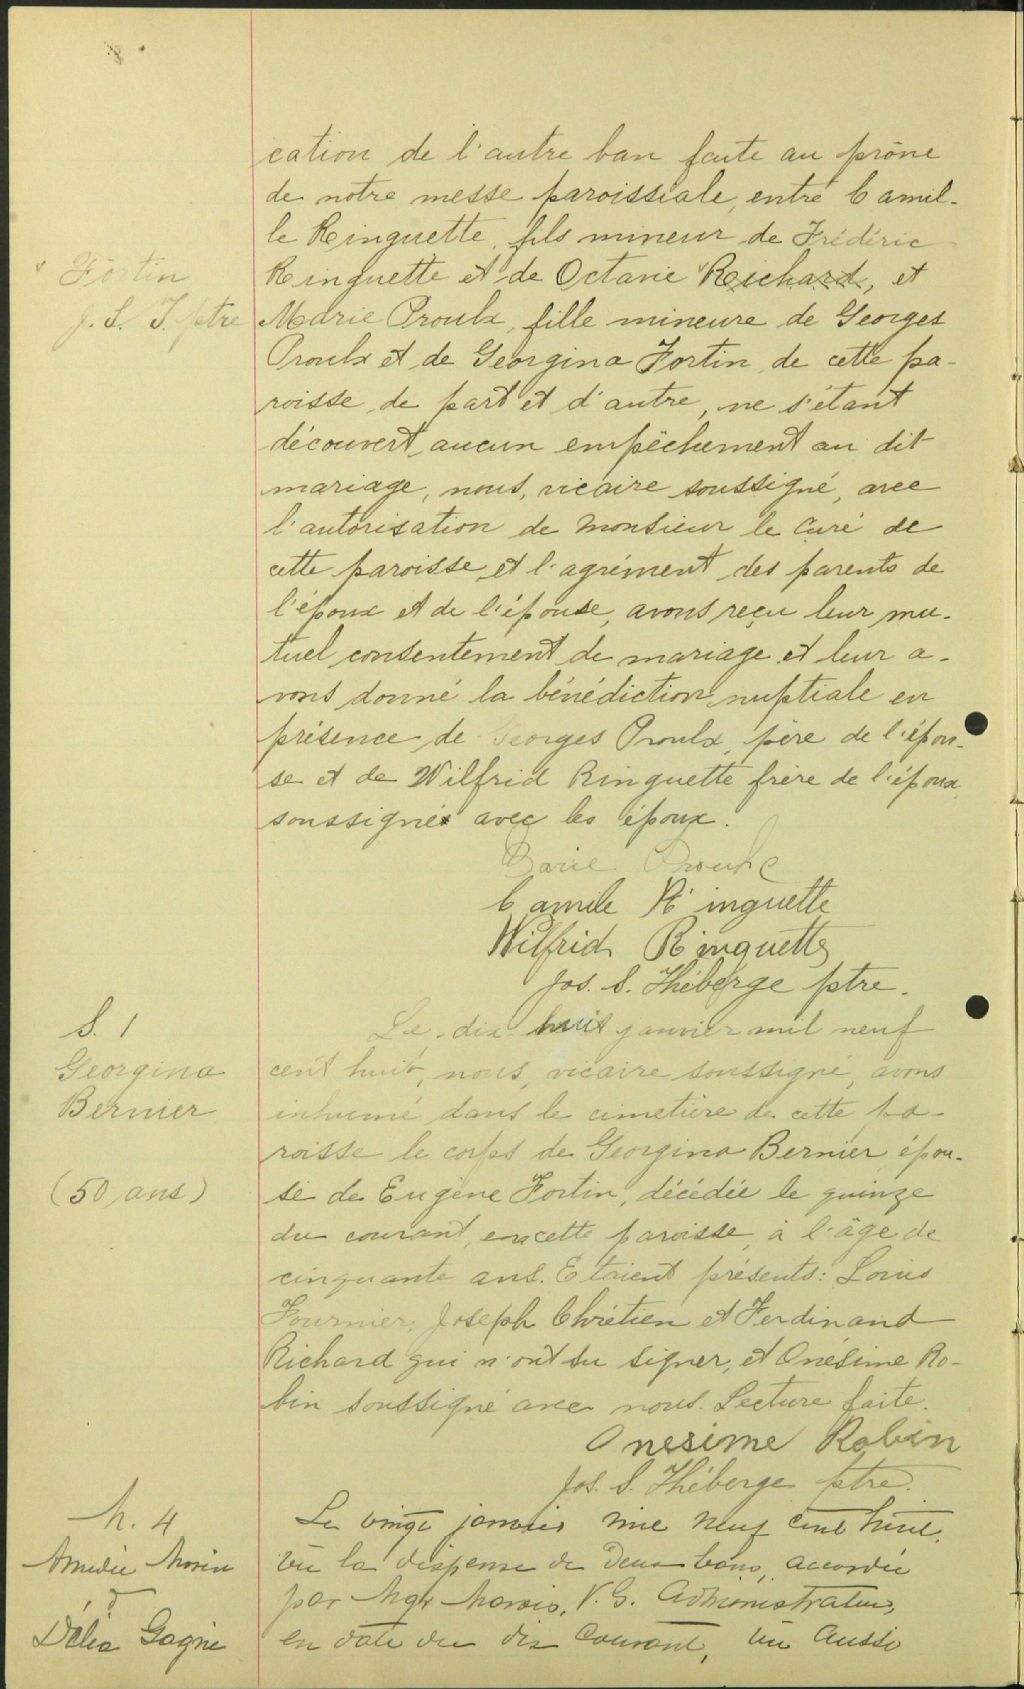 cation de l'autre ban faite au prône
de notre messe paroissiale, entre Camil-
le Ringuette, fils mineur de Frédéric
Ringuette et de Octavie Reichard, et
v Fortin
J. S. T. ptre
Marie Proulx, fille mineure de Georges
Proulx et de Georgina Fortin, de cette pa-
roisse de part et d'autre, ne s'étant
découvert aucun empêchement au dit
mariage, nous, vicaire soussigné, avec
l'autorisation de Monsieur le Curé de
cette paroisse et l'agrément des parents de
l'époux et de l'épouse, avons reçu leur mu-
tuel consentement de mariage et leur a-
vons donné la bénédiction nuptiale en
présence de Georges Proulx, père de l'épou-
se et de Wilfrid Ringuette frère de l'époux,
soussignés avec les époux.
Marie Proulx
Camile Ringuette
Wilfrid Ringuette
Jos. S. Théberge ptre.
S. 1
Georgina
Bernier
(50 ans)
Le dix-huit janvier mil neuf
cent huit, nous, vicaire soussigné, avons
inhumé dans le cimetière de cette pa-
roisse le corps de Georgina Bernier épou-
se de Eugène Fortin, décédée le quinze
du courant, en cette paroisse, à l'âge de
cinquante ans. Etaient présents: Louis
Fournier, Joseph Chrétien et Ferdinand
Richard qui n'ont su signer, et Onésime Ro-
bin soussigné avec nous. Lecture faite.
Onesime Robin
Jos. S. Théberge ptre.
M. 4
Amédée Morin
&
Délia Gagné
Le vingt janvier mil neuf cent huit,
vu la dispense de deux bans, accordée
par Mgr Marois, V. G. Administrateur,
en date du dix courant, vu aussi